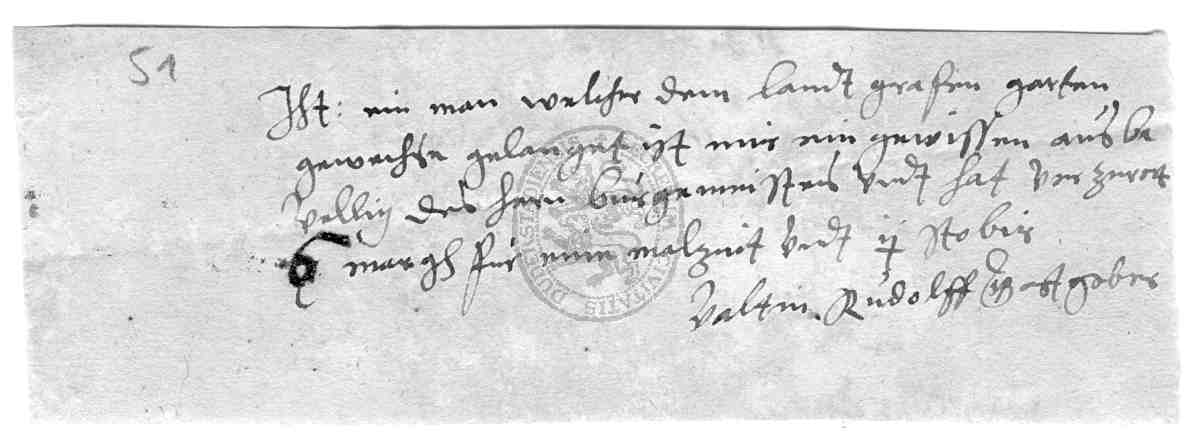 51
Ist: ein man welcher dem landt grafen garten
gewechse gelanget ist mir ein gewissen aus be
vellig des hern burgemeisters vndt hat vorzeret
6 für eine malzeit vndt ij stobig
Valtin Rudolff Gastgeber